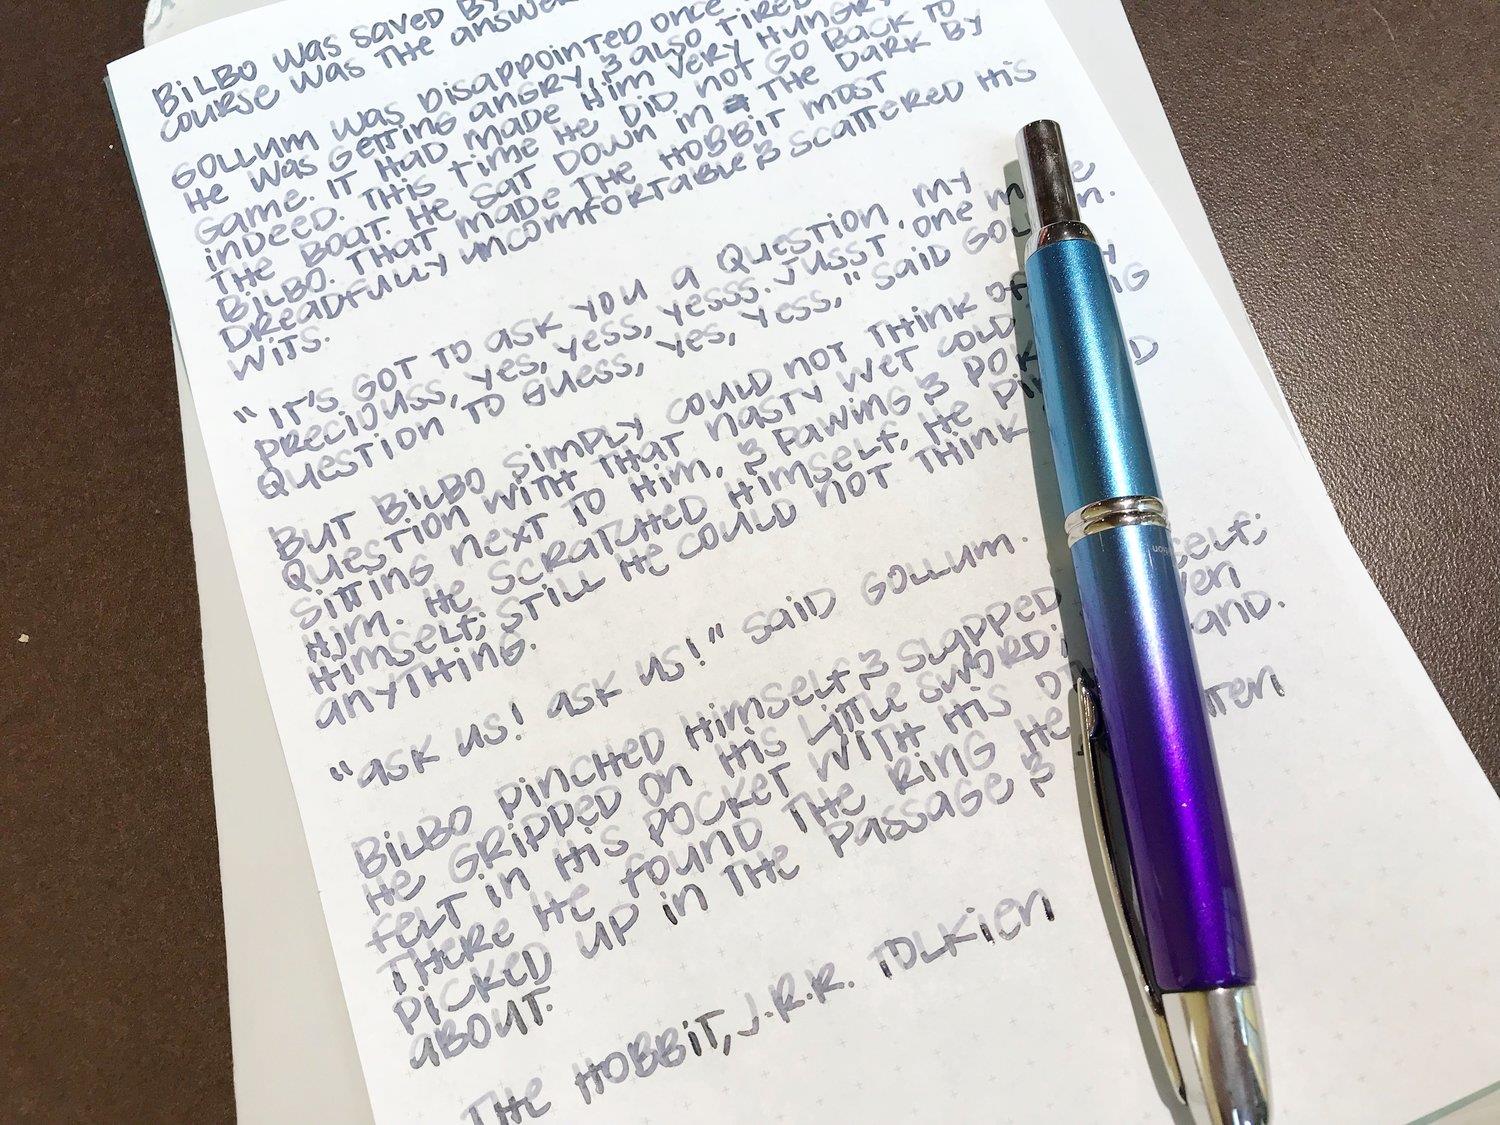 BiLBO was saved By
course was the answer
GOLLUM was Disappointed once
He was getting angry, & also tired
game. It had made him very hungry
indeed. This time he did not go back to
the boat. He sat down in the dark by
Bilbo. That made the hobbit most
dreadfully uncomfortable & scattered his
wits.
"It's got to ask you a question, my
preciouss, yes, yess, yesss. Jusst one
question to guess, yes, yess," said
But Bilbo simply could not think of
question with that nasty wet cold
sitting next to him, & pawing &
him. He scratched himself, he
himself; still he could not think
anything.
"ask us! ask us!" said Gollum.
Bilbo pinched himself & slapped
he gripped on his little sword;
felt in his pocket with his
There he found the ring he
picked up in the passage &
about.
The Hobbit, J.R.R. Tolkien